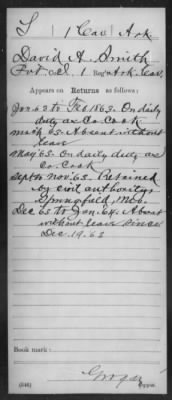 S 1 Cav Ark
David A. Smith
Pvt, Co. I, 1 Reg't Ark. Cav.
Appears on Returns as follows:
Jan. 63 to Feb. 1863. On daily
duty as Co. Cook
Mch. 63. Absent without
leave
May 63. On daily duty as
Co. Cook
Sept to Nov. 63. Retained
by civil authority
Springfield, Mo.
Dec 63 to Jan. 64. Absent
without leave since
Dec. 19. 63
Book mark:
(546) Copyist.